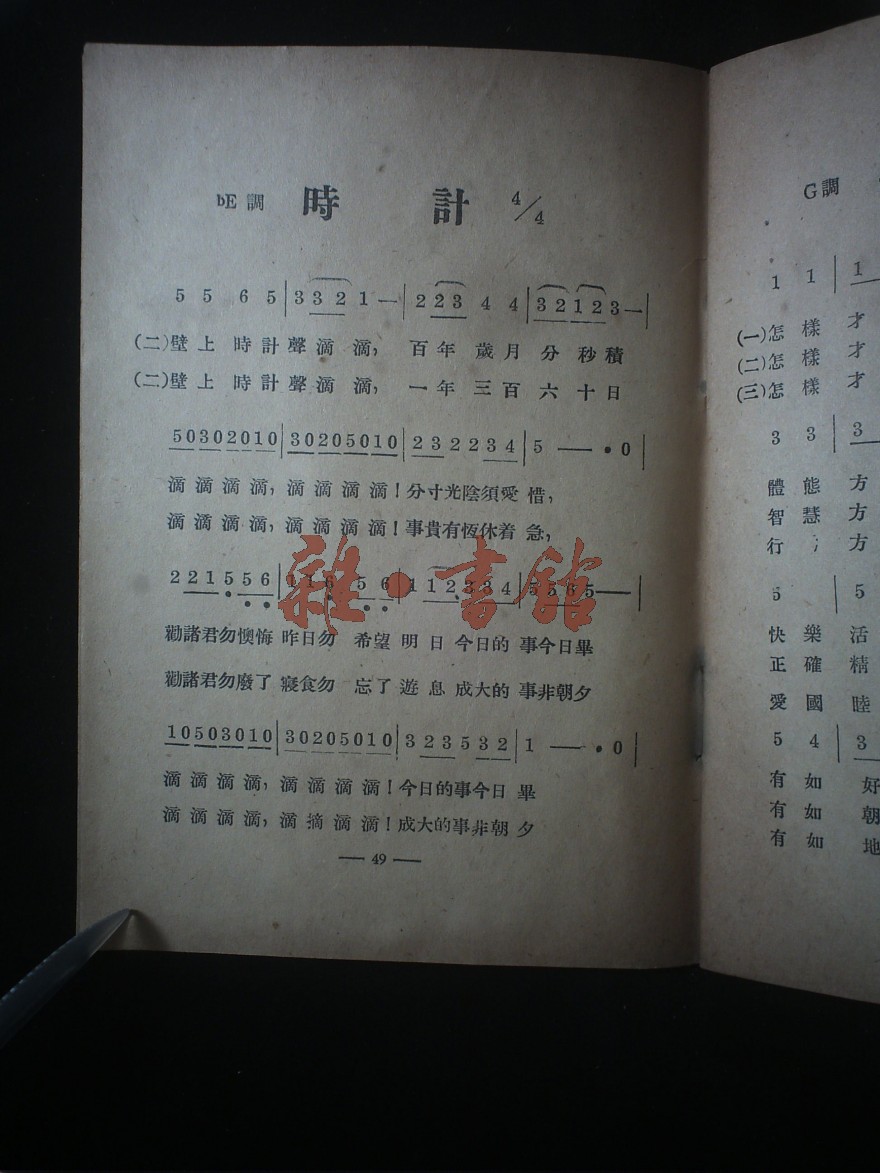 bE調 時 計 4/4
5 5 6 5 | 3 3 2 1 — | 2 2 3 4 4 | 3 2 1 2 3 — |
(二)壁上時計聲滴滴，百年歲月分秒積
(二)壁上時計聲滴滴，一年三百六十日
5 0 3 0 2 0 1 0 | 3 0 2 0 5 0 1 0 | 2 3 2 2 3 4 | 5 — • 0 |
滴滴滴滴，滴滴滴滴！分寸光陰須愛惜，
滴滴滴滴，滴滴滴滴！事貴有恆休着急，
2 2 1 5 5 6 | 1 1 6 5 6 | 1 1 2 3 3 4 | 5 5 6 5 — |
勸諸君勿懊悔昨日勿 希望明日今日的事今日畢
勸諸君勿廢了寢食勿 忘了遊息成大的事非朝夕
1 0 5 0 3 0 1 0 | 3 0 2 0 5 0 1 0 | 3 2 3 5 3 2 | 1 — • 0 |
滴滴滴滴，滴滴滴滴！今日的事今日畢
滴滴滴滴，滴摘滴滴！成大的事非朝夕
— 49 —
雜·書館
G調
1 1 | 1
(一)怎樣才
(二)怎樣才
(三)怎樣才
3 3 | 3
體態方
智慧方
行 方
5 | 5
快樂活
正確精
愛國睦
5 4 | 3
有如好
有如朝
有如地